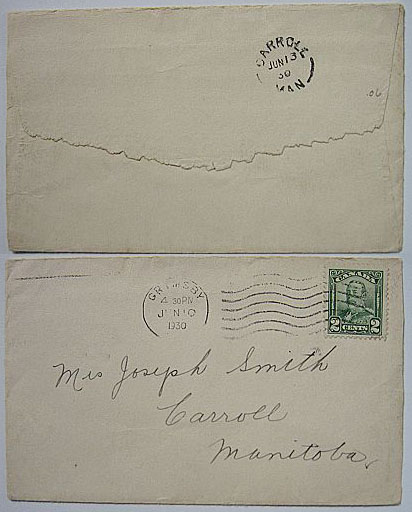 CARROLL
JUN 13
30
MAN
.06
GRIMSBY
4 30 PM
JUN 10
1930
CANADA
2 CENTS 2
Mrs Joseph Smith
Carroll
Manitoba